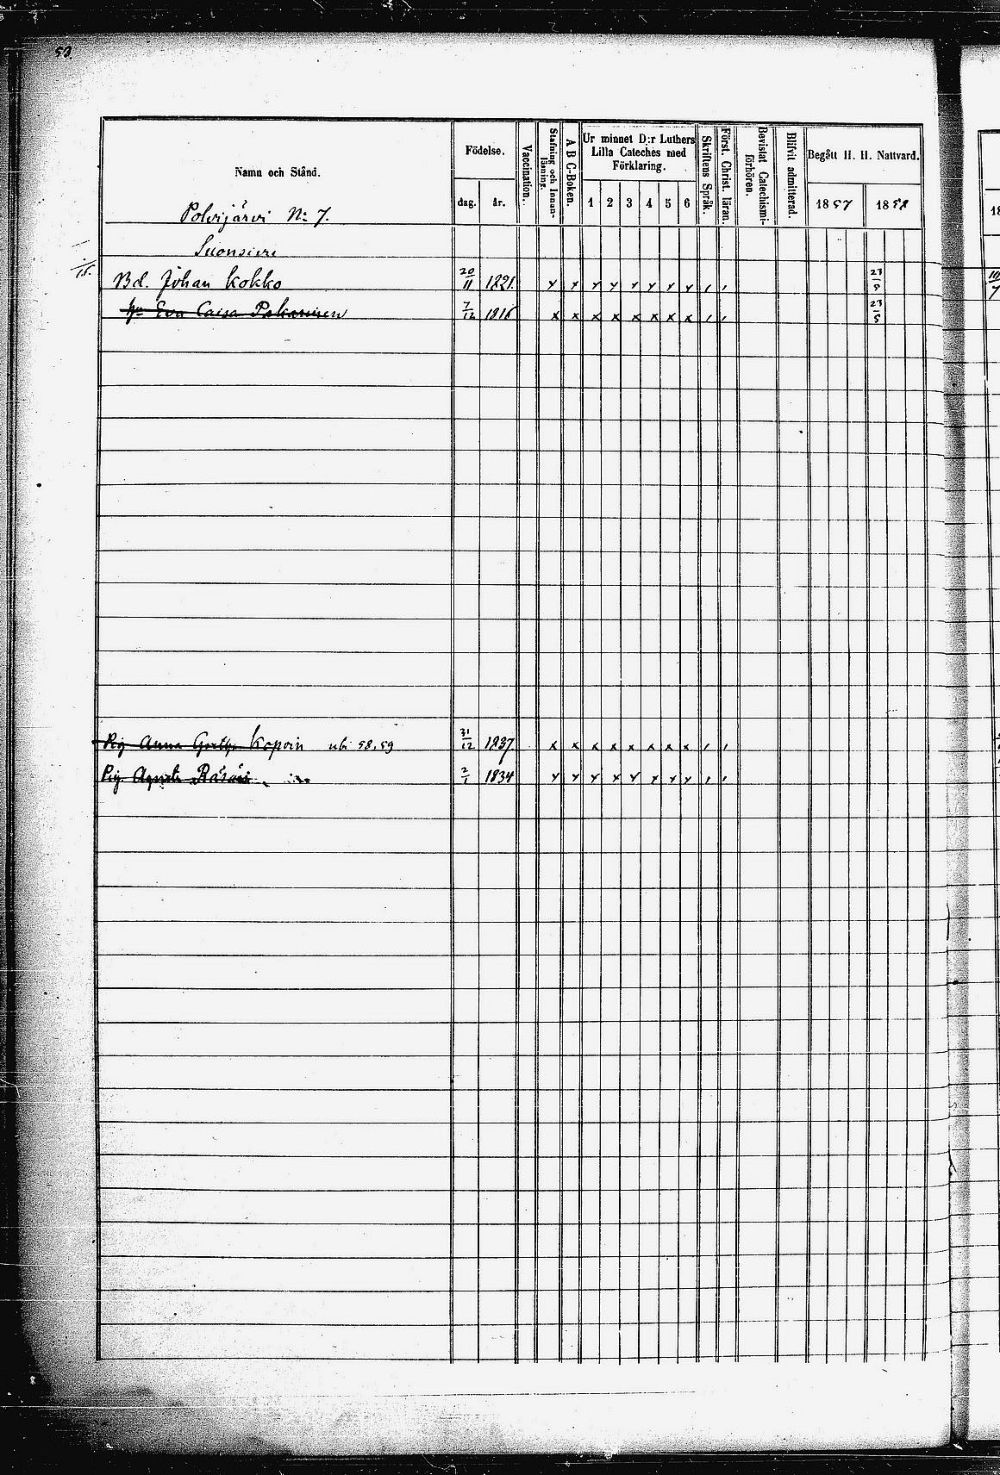 53.
Namn och Stånd.
Födelse.
dag.
år.
Vaccination.
Stafning och Innan-
läsning.
A B C-Boken.
Ur minnet D:r Luthers
Lilla Cateches med
Förklaring.
1 2 3 4 5 6
Skriftens Språk.
Först. Christ. läran.
Bevistat Catechismi-
förhören.
Blifvit admitterad.
Begått H. H. Nattvard.
1857 1858
Polvijärvi N: 7.
Bd. Johan Kokko 20/11 1821 x x x x x x x x , , 23/5
Eva Caisa 7/12 1816 x x x x x x x x , , 23/5
Pig Anna Kapain ubi 58,59 31/12 1837 x x x x x x x x , ,
Pig 2/1 1834 x x x x x x x x , ,